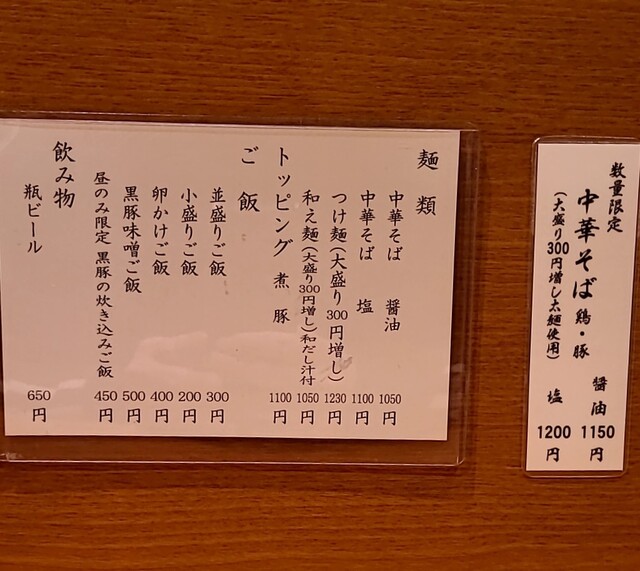 数量限定
中華そば 鶏・豚 醤油 1150円
(大盛り300円増し太麺使用) 塩 1200円
麺類
中華そば 醤油 1050円
中華そば 塩 1100円
つけ麺(大盛り300円増し) 1230円
和え麺(大盛り300円増し)和だし汁付 1050円
トッピング 煮豚 1100円
ご飯
並盛りご飯 300円
小盛りご飯 200円
卵かけご飯 400円
黒豚味噌ご飯 500円
昼のみ限定 黒豚の炊き込みご飯 450円
飲み物
瓶ビール 650円